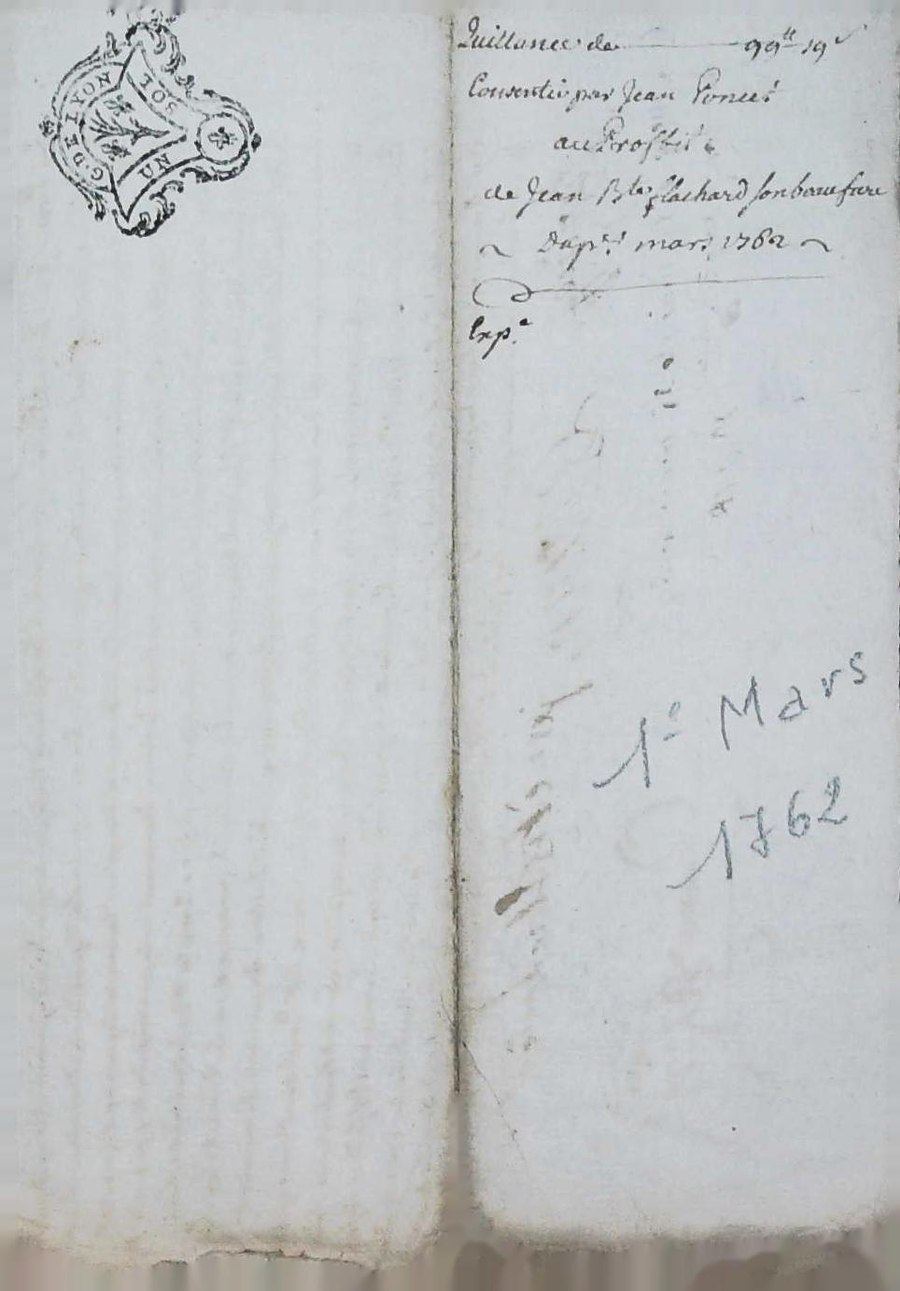 G. DE LYON
UN SOL
Quittance de 99ᵗᵗ 19ˢ
Consentie par Jean Poncet
au Proffit
de Jean Bᵗᵉ flachard son beaufrere
Du pʳ mars 1762
Expᵉ
1º Mars
1762